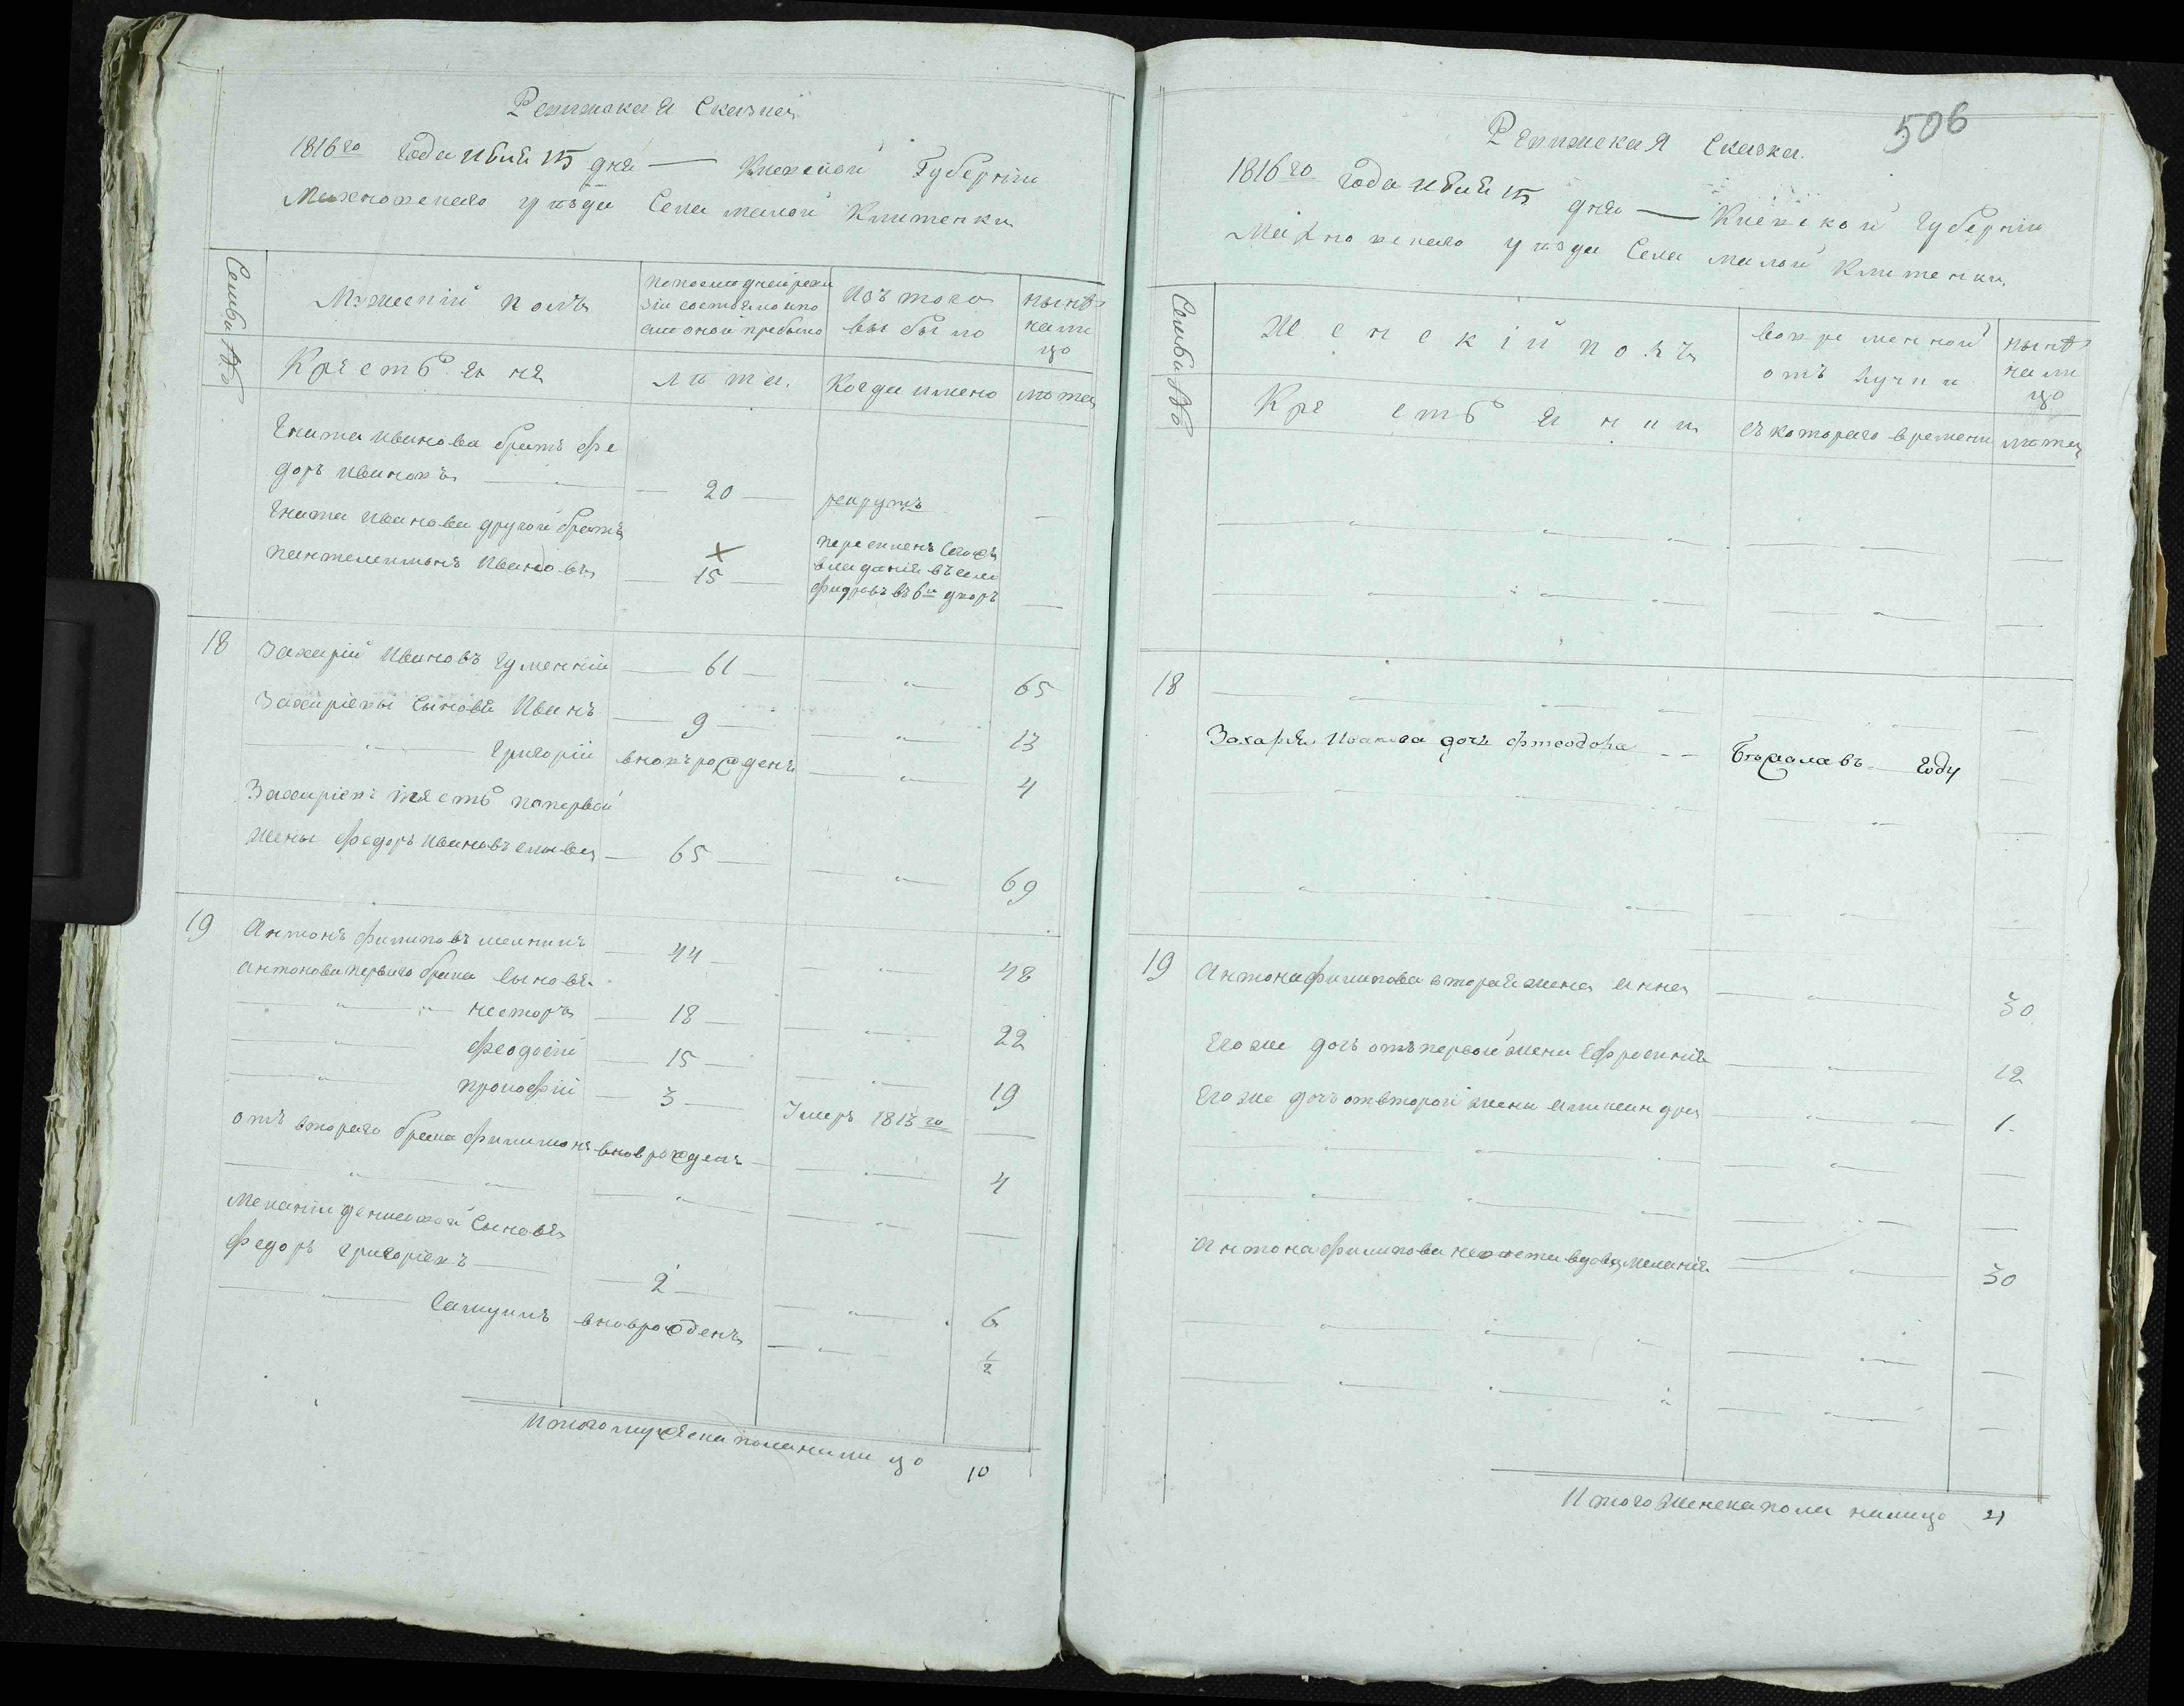 Ревижская Сказка
1816го Года Июня 15 дня — Киевской Губернїи
Махновскаго уезда Села малой Клитенки
Семьи №
Мужескїй полъ
По последней реви
зїи состояло и по
сле оной прибыло
Изъ того
выбыло
ныне
нали
цо
Крестьяне
лета
Когда имено
лета
Гната Иванова братъ Фе
доръ Ивановъ — 20 — рекрутъ —
Гната Иванова другой братъ
пантелимонъ Ивановъ — 15 —
18 Захарїй Ивановъ Гуменнїй — 61 — 65
Захарїевы Сыновя Иванъ — 9 — 13
Григорїй вновъ рожденъ — 4
Захарїевъ тесть поперъвой
жены Федоръ Ивановъ — 65 — 69
19 Антонъ филиповъ — 44 — 48
антонова перваго брака Сыновя
несторъ — 18 — 22
Феодосїй — 15 — 19
прокофїй — 3 — Умеръ 1813го —
отъ втораго брака филимонъ вновь рожденъ — 4
Меланїи Сыновя
Федоръ Григорїевъ — 2 — 6
Самуилъ вновь рожденъ — 1/2
Итого мужеска пола налицо 10
506
Ревижская Сказка.
1816го Года Июня 15 дня — Киевской Губернїи
Махновскаго уезда Села малой Клитенки
Семьи №
Женскїй полъ
Вовременной
отлучки
ныне
нали
цо
Крестьянки
съ котораго времени
лета
18
Захарїя Иванова дочь Феодора — Бежала въ — Году —
19 Антона филипова вторая жена Анна — 30
Его же дочь отъ первой жены Ефросинїя — 12
Его же дочь отвторой жены Александра — 1.
Антона филипова вдова Меланїя — 30
Итого женска пола налицо 4